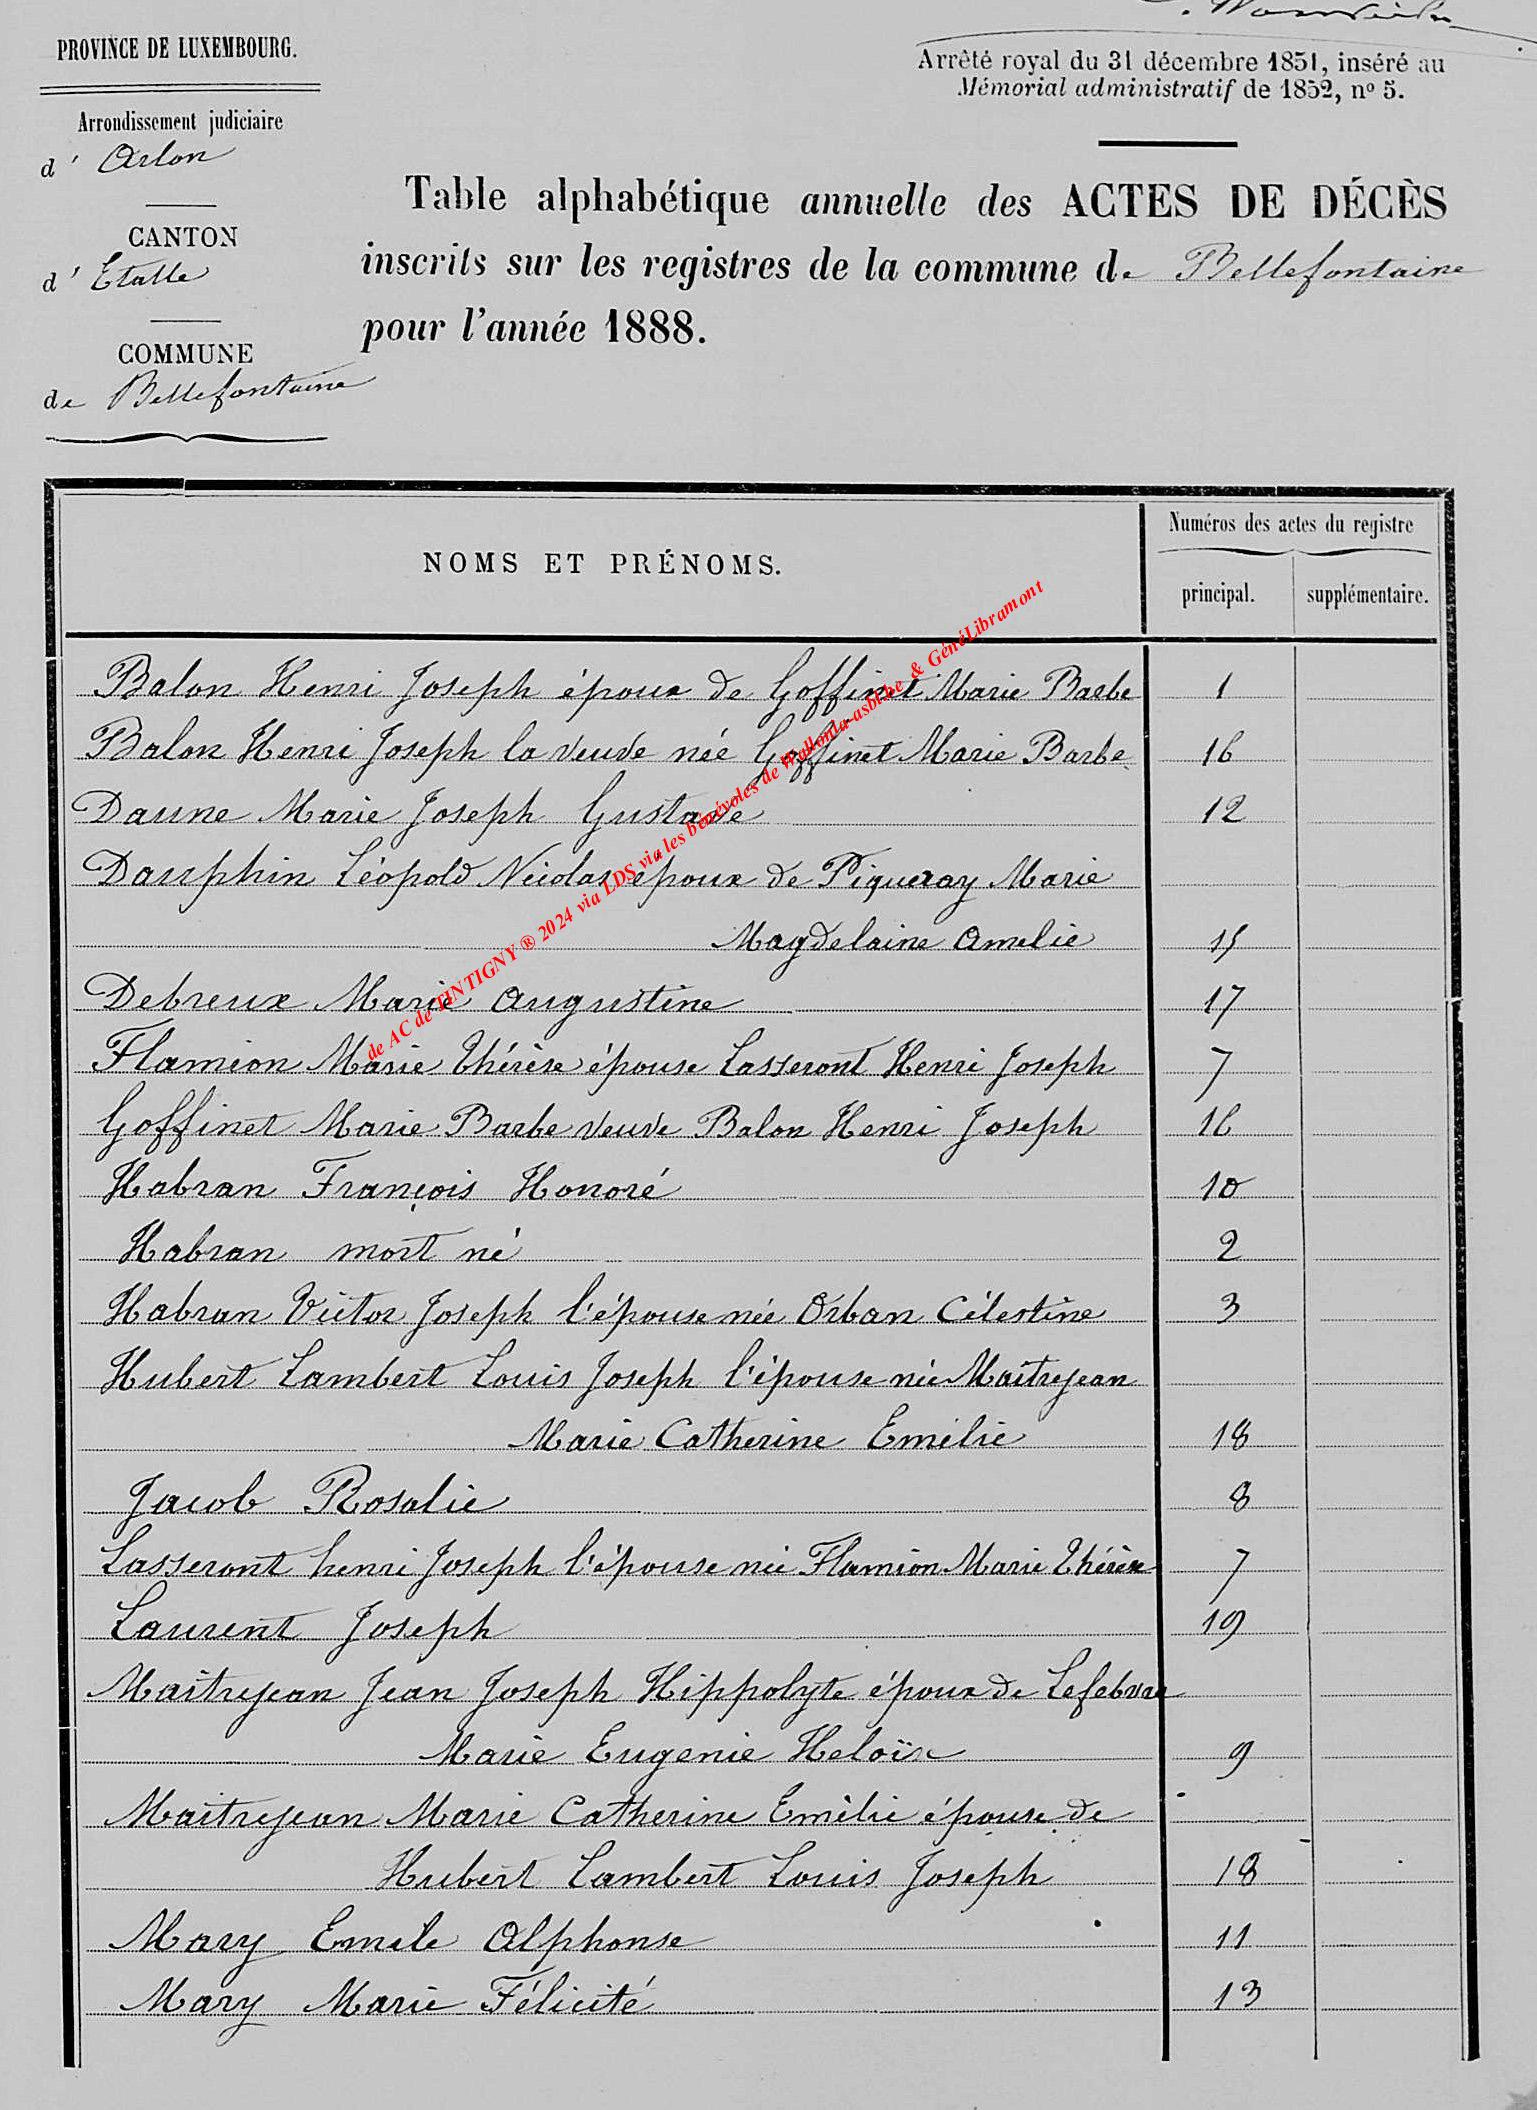 PROVINCE DE LUXEMBOURG.
Arrondissement judiciaire
d' Arlon
CANTON
d' Etalle
COMMUNE
de Bellefontaine
Arrêté royal du 31 décembre 1851, inséré au
Mémorial administratif de 1852, nº 5.
Table alphabétique annuelle des ACTES DE DÉCÈS
inscrits sur les registres de la commune de Bellefontaine
pour l'année 1888.
NOMS ET PRÉNOMS.
Numéros des actes du registre
principal. supplémentaire.
Balon Henri Joseph époux de Goffinet Marie Barbe 1
Balon Henri Joseph la veuve née Goffinet Marie Barbe 16
Daune Marie Joseph Gustave 12
Dauphin Léopold Nicolas époux de Piqueray Marie
Magdelaine Amelie 15
Debreux Marie Augustine 17
Flamion Marie Thérèse épouse Lasseront Henri Joseph 7
Goffinet Marie Barbe veuve Balon Henri Joseph 16
Habran François Honoré 10
Habran mort né 2
Habran Victor Joseph l'épouse née Orban Célestine 3
Hubert Lambert Louis Joseph l'épouse née Maitrejean
Marie Catherine Emélie 18
Jacob Rosalie 8
Lasseront henri Joseph l'épouse née Flamion Marie Thérèse 7
Laurent Joseph 19
Maitrejean Jean Joseph Hippolyte époux de Lefebvre
Marie Eugenie Heloïse 9
Maitrejean Marie Catherine Emélie épouse de
Hubert Lambert Louis Joseph 18
Mary Emile Alphonse 11
Mary Marie Félicité 13
de AC de TINTIGNY ® 2024 via LDS via les bénévoles de Wallonia-asbl.be & GénéLibramont